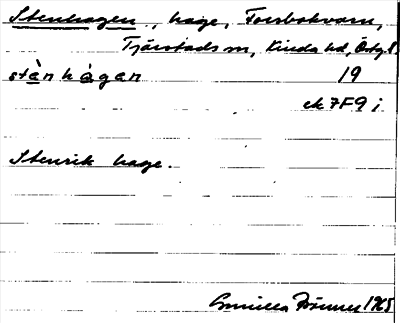 Stenhagen, hage, Forsbokvarn,
Tjärstads sn, Kinda hd, Östg.
stànhàgan 19
ek 7F9 i
Stenrik hage.
Gunilla 1965